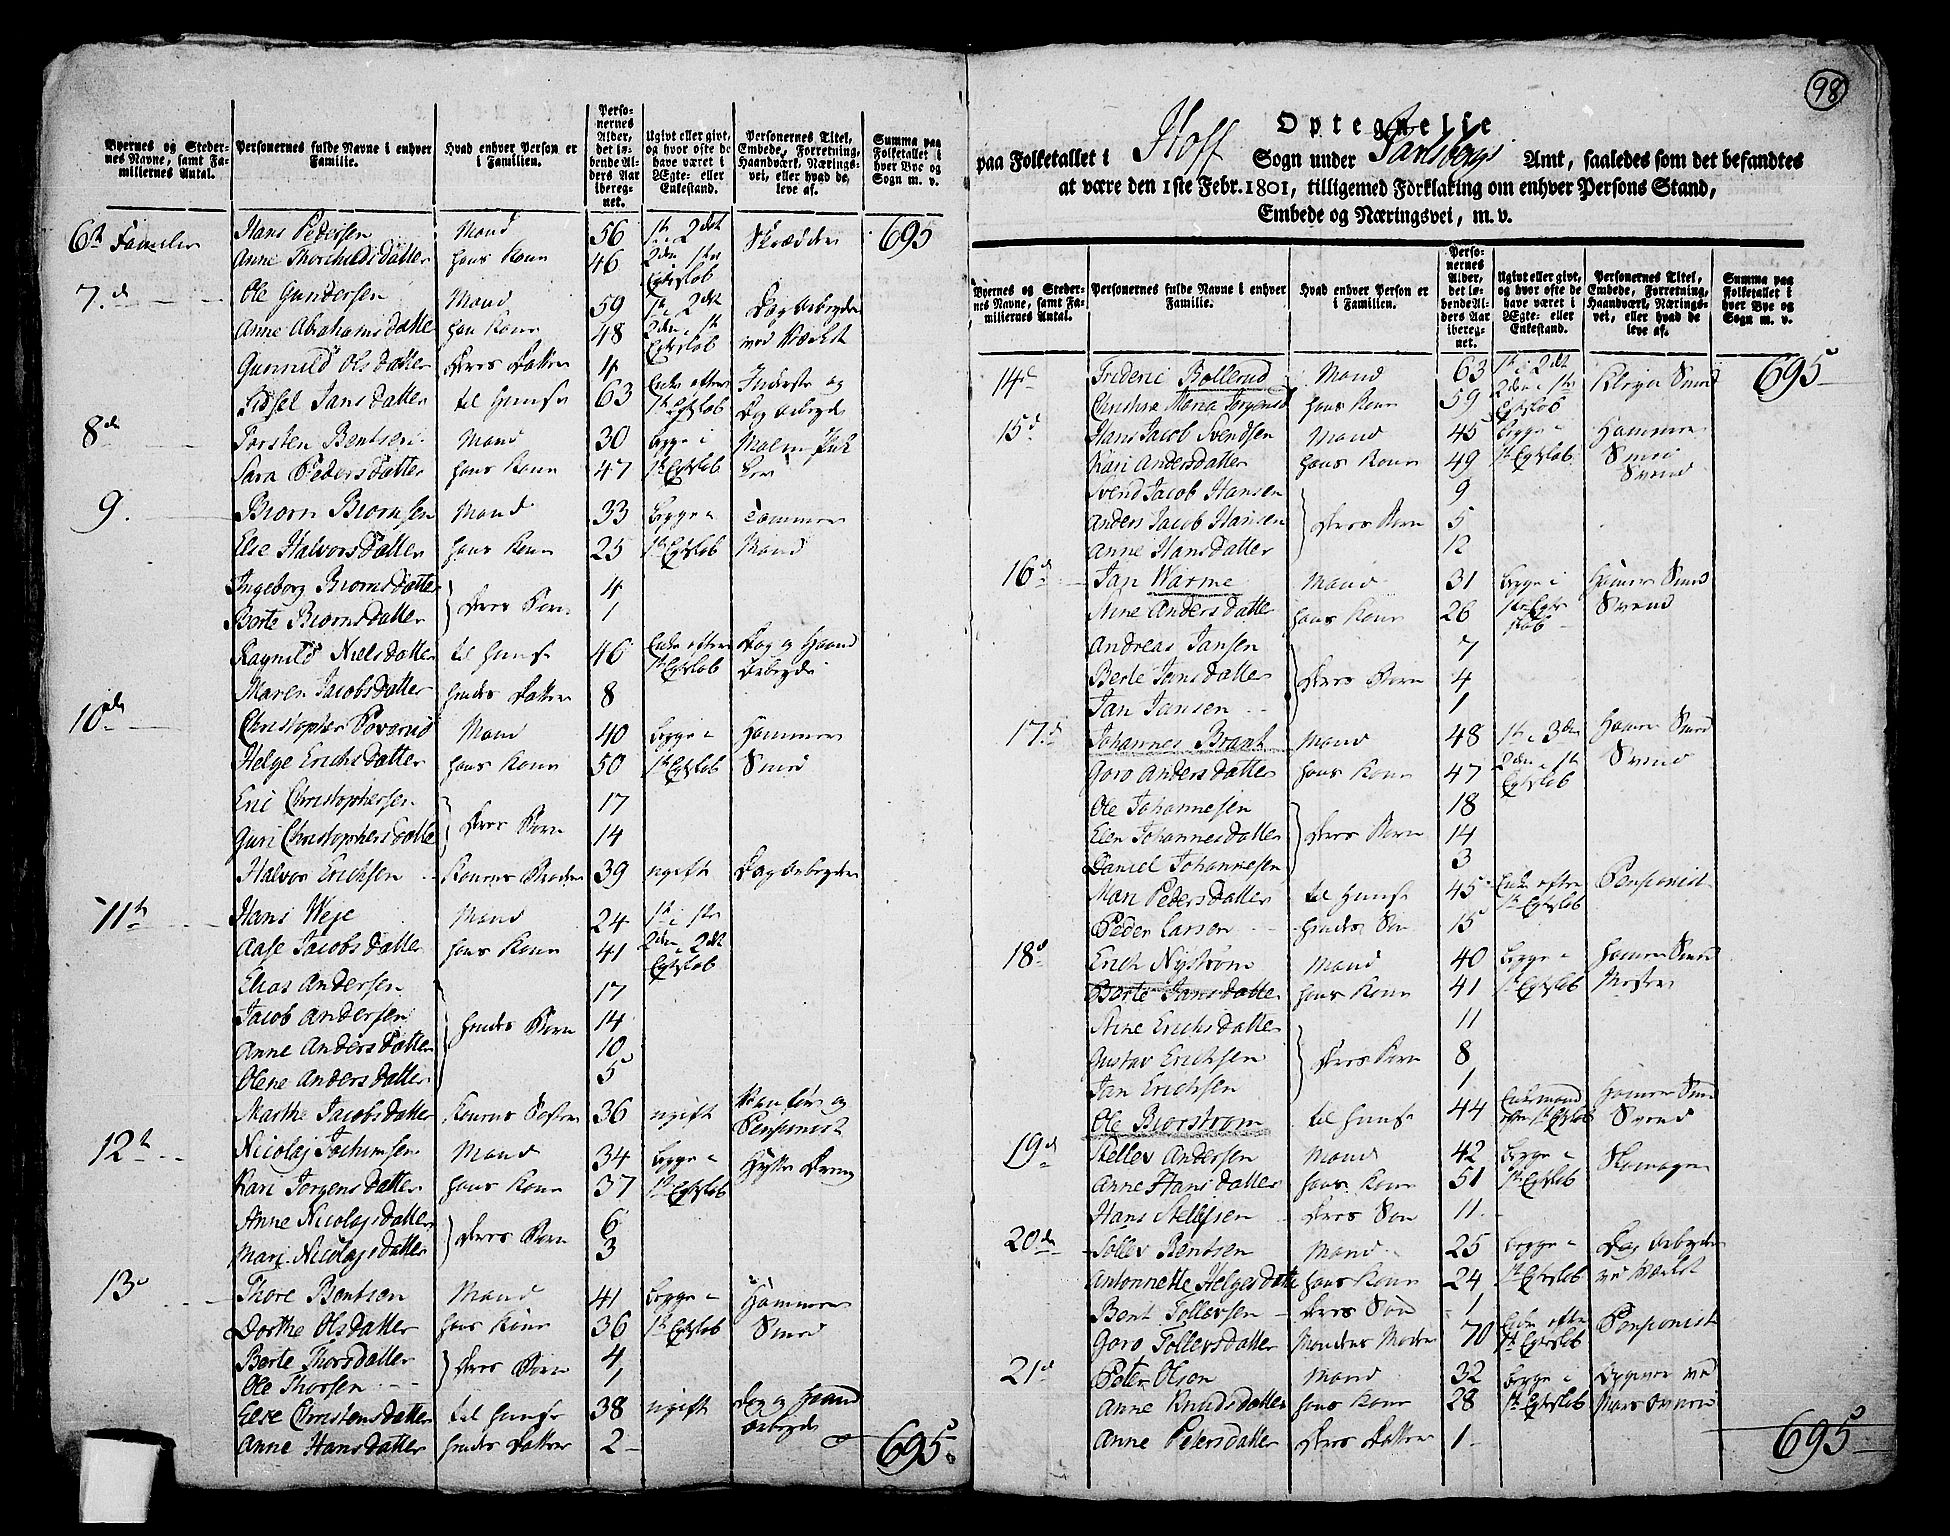 Byernes og Steder-
nes Navne, samt Fa-
miliernes Antal.
Personernes fulde Navne i enhver
Familie.
Hvad enhver Person er
i Familien.
Perso-
nernes
Alder,
det lø-
bende Al-
ders Aar
ibereg-
net.
Ugivt eller givt,
og hvor ofte de
have været i
Ægte- eller
Enkestand.
Personernes Titel,
Embede, Forretning,
Haandværk, Nærings-
vei, eller hvad de
leve af.
Summa paa
Folketallet i
hver Bye og
Sogn m. v.
6te Familie Hans Pedersen Mand 56 1ste i 2det Skrædder 695
Anne Thorchildsdatter hans Kone 46 2den i 1ste Egteskab
7de Ole Gundersen Mand 59 1ste i 2det Dagarbeyder
Anne Abrahamsdatter hans Kone 48 2den i 1ste Egteskab ved Værket
Gunnild Olsdatter Deres Datter 4
Sidsel Jansdatter til Huuse 63 Enke efter 1ste Egteskab Inderste og Dagarbeyde
8de Torsten Bentsen Mand 30 begge i
Sara Pedersdatter hans Kone 47 1ste Egteskab
9. Biørn Biørnsen Mand 33 begge i Tømmer
Else Halvorsdatter hans Kone 25 1ste Egteskab Mand
Ingeborg Biørnsdatter 4
Berte Biørnsdatter Deres Børn 1
Ragnild Nielsdatter til Huuse 46 Enke efter 1ste Egteskab Dag og Haand Arbeyde
Maren Jacobsdatter hendes Datter 8
10de Christopher Povorud Mand 40 begge i Hammer
Helge Erichsdatter hans Kone 50 1ste Egteskab Smed
Eric Christophersen 17
Guri Christophersdatter Deres Børn 14
Halvor Erichsen Konens Broder 39 ugift Dagarbeyder
11te Hans Weje Mand 24 1ste i 1ste
Aase Jacobsdatter hans Kone 41 2den i 2det Egteskab
Elias Andersen 17
Jacob Andersen hendes Børn 14
Anne Andersdatter 10
Olene Andersdatter 5
Marthe Jacobsdatter Konens Søster 36 ugift Vanfør og Pensionist
12te Nicolaj Jochumsen Mand 34 begge i Hytte Dreng
Kari Jørgensdatter hans Kone 37 1ste Egteskab
Anne Nicolajsdatter 6
Mari Nicolajsdatter Deres Børn 3
13de Thore Bentsen Mand 41 begge i Hammer
Dorthe Olsdatter hans Kone 36 1ste Egteskab Smed
Berte Thorsdatter 4
Ole Thorsen Deres Børn 1
Else Christensdatter til Huuse 38 ugift Dag og Haand Arbeyde
Anne Hansdatter hendes Datter 2 695
98
Optegnelse
paa Folketallet i Hoff Sogn under Jarlsbergs Amt, saaledes som det befandtes
at være den 1ste Febr. 1801, tilligemed Forklaring om enhver Persons Stand,
Embede og Næringsvei, m. v.
Byernes og Steder-
nes Navne, samt Fa-
miliernes Antal.
Personernes fulde Navne i enhver
Familie.
Hvad enhver Person er
i Familien.
Perso-
nernes
Alder,
det lø-
bende Al-
ders Aar
ibereg-
net.
Ugivt eller givt,
og hvor ofte de
have været i
Ægte- eller
Enkestand.
Personernes Titel,
Embede, Forretning,
Haandværk, Nærings-
vei, eller hvad de
leve af.
Summa paa
Folketallet i
hver Bye og
Sogn m. v.
14de Frideric Bollerud Mand 63 1ste i 2det Smed 695
Christina Maria Jørgensd hans Kone 59 2den i 1ste Egteskab
15de Hans Jacob Svendsen Mand 45 begge i Hammer
Kari Andersdatter hans Kone 49 1ste Egteskab Smed Svend
Svend Jacob Hansen 9
Anders Jacob Hansen Deres Børn 5
Anne Hansdatter 12
16de Jan Warme Mand 31 begge i Hammer Smed
Stine Andersdatter hans Kone 26 1ste Egteskab Svend
Andreas Jansen 7
Berte Jansdatter Deres Børn 4
Jan Jansen 1
17de Johannes Brant Mand 48 1ste i 3die Hammer Smed
Goro Andersdatter hans Kone 47 2den i 1ste Egteskab Svend
Ole Johannesen 18
Elen Johannesdatter Deres Børn 14
Daniel Johannesen 3
Mari Pedersdatter til Huuse 45 Enke efter 1ste Egteskab Pensionist
Peder Larsen hendes Søn 15
18de Erich Nystrøm Mand 40 begge i Hammer Smed
Berte Jansdatter hans Kone 41 1ste Egteskab Mester
Stine Erichsdatter 11
Gustav Erichsen Deres Børn 8
Jan Erichsen 1
Ole Biorstrøm til Huuse 44 Enkemand efter 1ste Egteskab Hammer Smed Svend
19de Stellev Andersen Mand 42 begge i Skomager
Anne Hansdatter hans Kone 51 1ste Egteskab
Hans Stellefsen Deres Søn 11
20de Tollev Bentsen Mand 25 begge i Dag Arbeyder
Antonnette Helgesdatte hans Kone 24 1ste Egteskab ved Værket
Bent Tollevsen Deres Søn 1
Goro Tollevsdatter Mandens Moder 70 Enke efter 1ste Egteskab Pensionist
21de Peter Olson Mand 32 begge i
Anne Knudsdatter hans Kone 28 1ste Egteskab
Anne Petersdatter Deres Datter 1 695